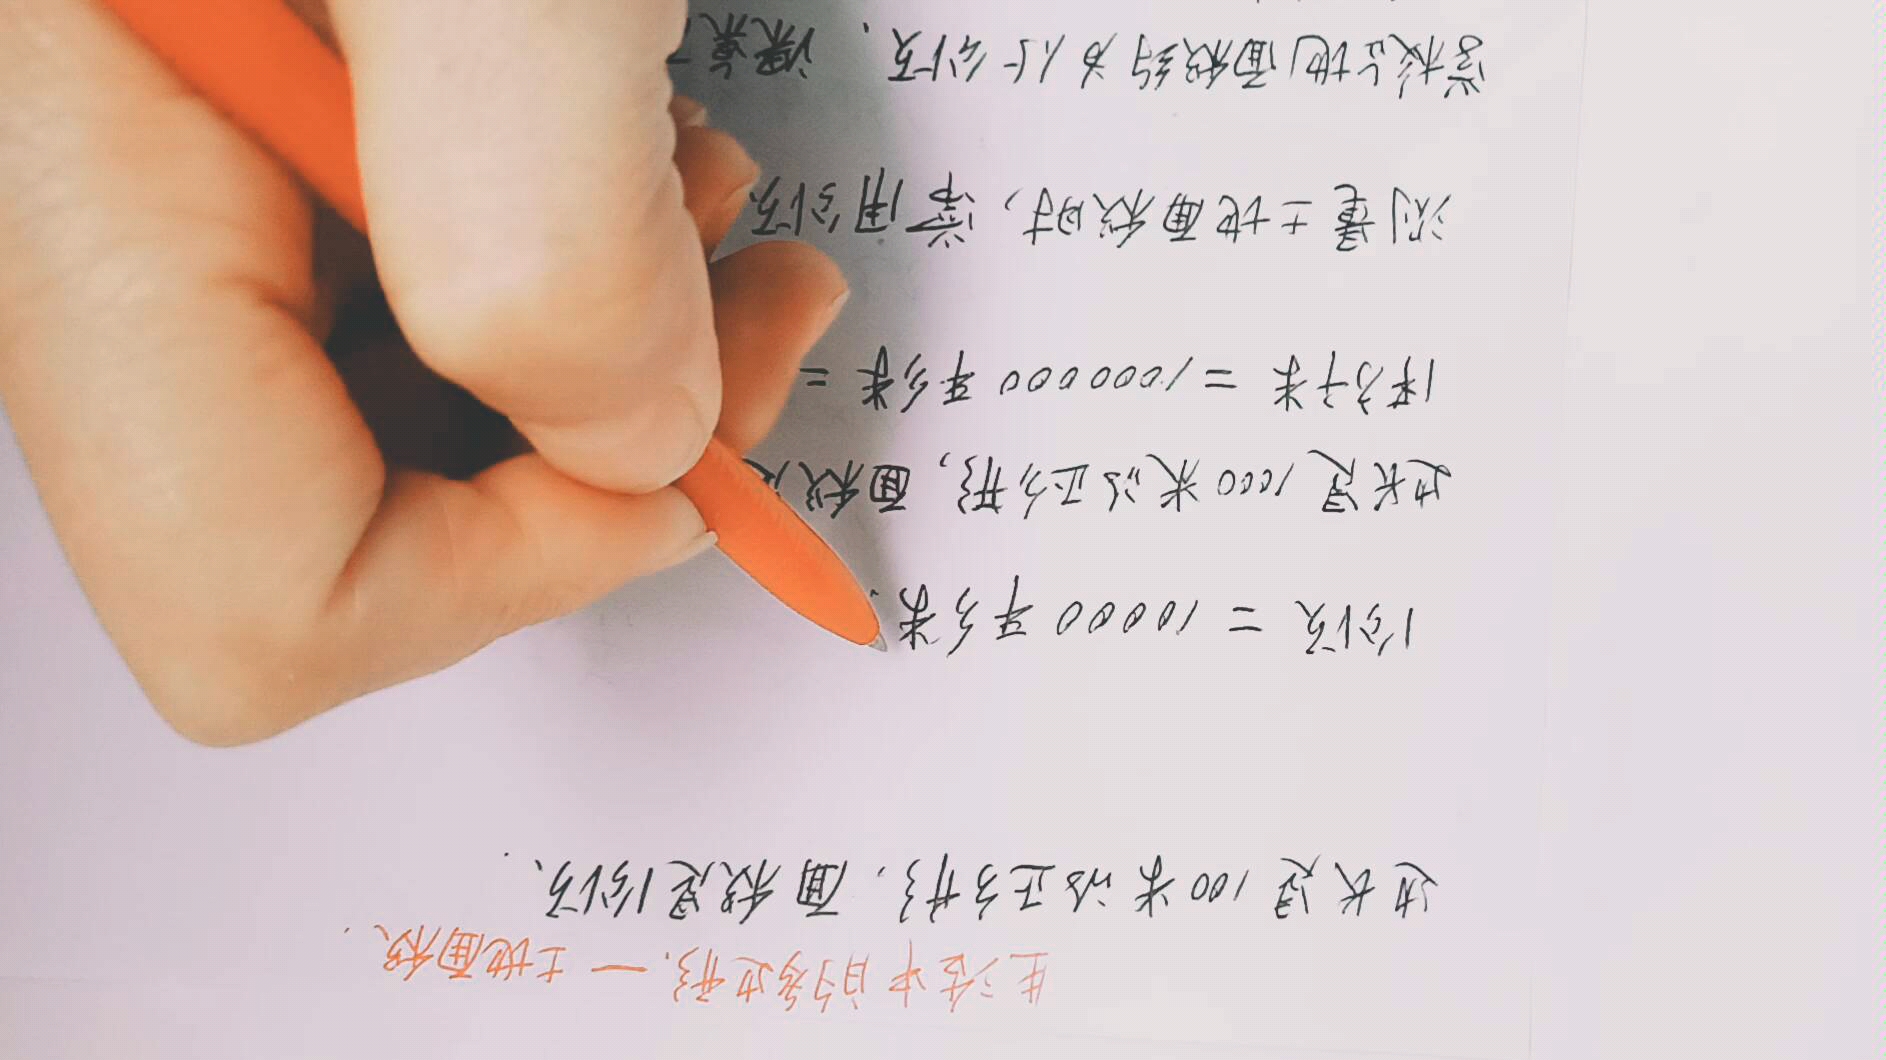 生活中的多边形.—土地面积.
边长是100米的正方形,面积是1公顷.
1公顷 = 10000平方米.
边长是1000米的正方形,面积是
1平方千米 = 1000000平方米 =
测量土地面积时,常用公顷
学校占地面积约为 公顷. 课桌